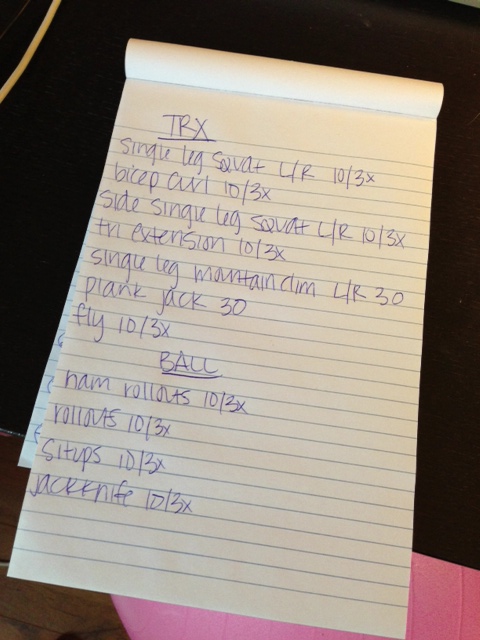 TRX
single leg squat L/R 10/3x
bicep curl 10/3x
side single leg squat L/R 10/3x
tri extension 10/3x
single leg mountain clim L/R 30
plank jack 30
fly 10/3x
BALL
ham rollouts 10/3x
rollouts 10/3x
situps 10/3x
jackknife 10/3x